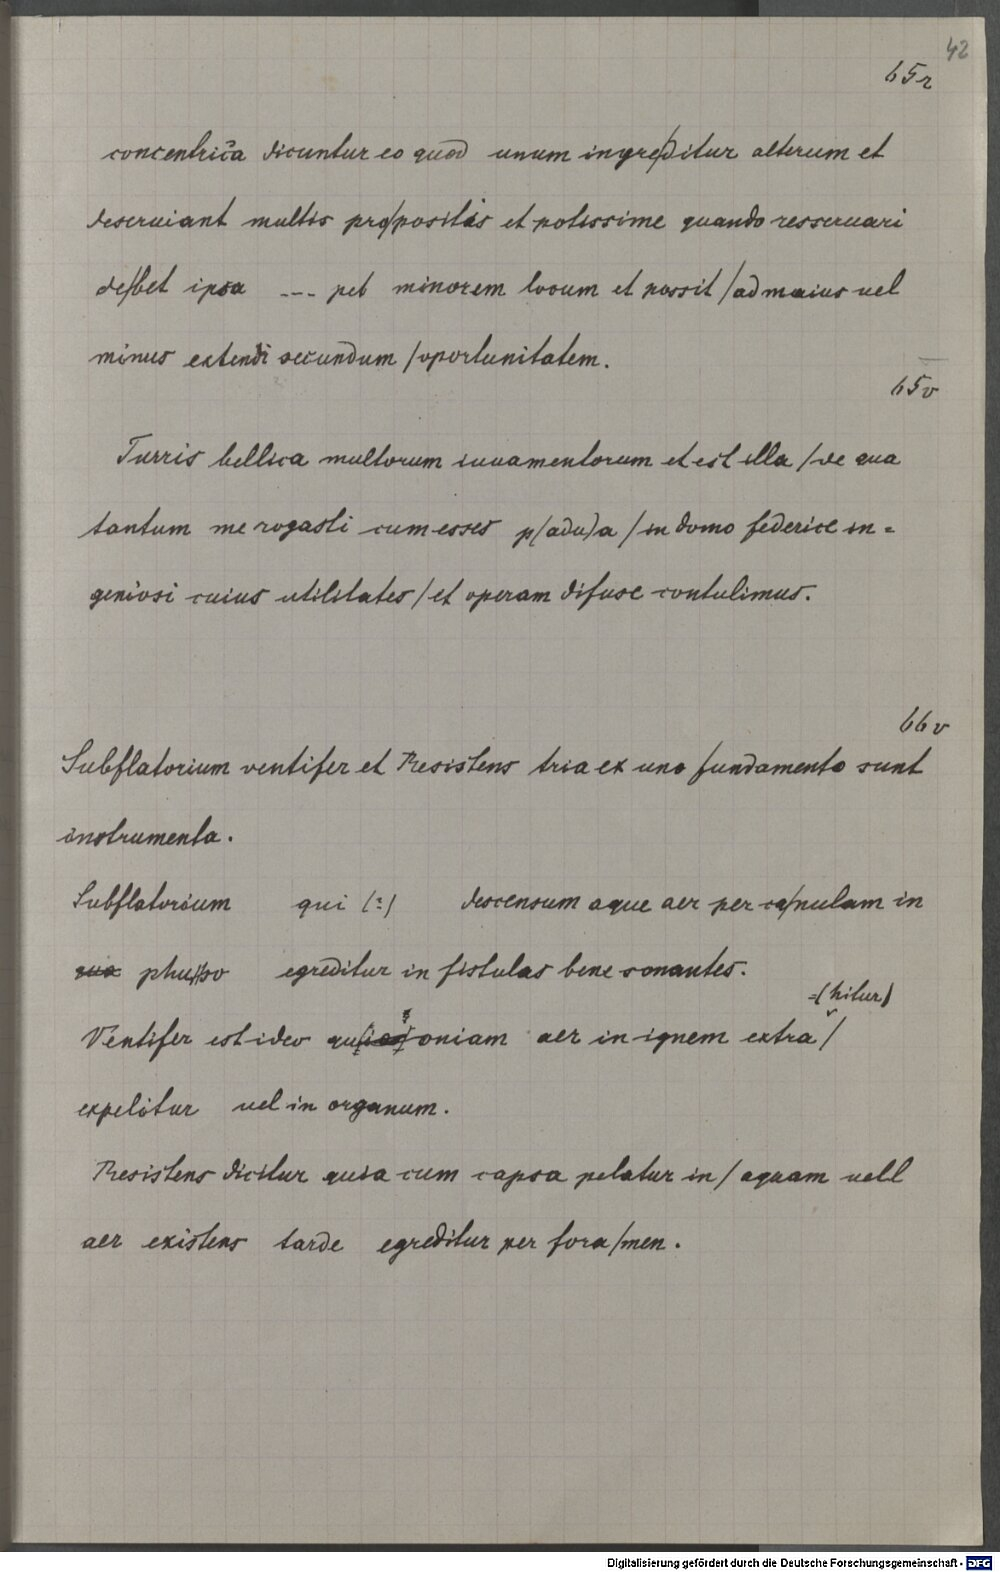 42
65r
concentrica dicuntur eo quod unum ingre/ditur alterum et
deseruiant multis pro/positis et potissime quando resseruari
de/bet ipsa --- pet minorem locum et possit /ad maius uel
minus extendi secundum /oportunitatem.
65v
Turris bellica multorum iuuamentorum et est illa /de qua
tantum me rogasti cum esses p(adu)a /in domo federice in=
geniosi cuius utilitates /et operam difuse contulimus.
66v
Subflatorium ventifer et Resistens tria ex uno fundamento sunt
instrumenta.
Subflatorium qui (?) descensum aque aer per ca/nulam in
egreditur in fistulas bene sonantes.
=(hitur)
Ventifer est ideo oniam aer in ignem extra /
expelitur uel in organum.
Resistens dicitur quia cum capsa pelatur in /aquam uell
aer existens tarde egreditur per fora/men.
Digitalisierung gefördert durch die Deutsche Forschungsgemeinschaft - DFG